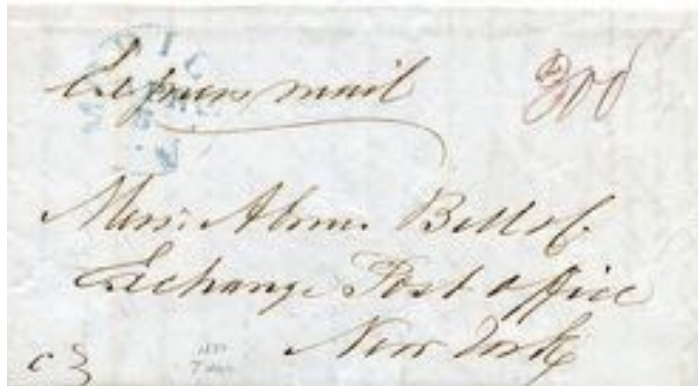 Express mail
300
Messrs Abrm. Bell & Co.
Exchange Post office
New York